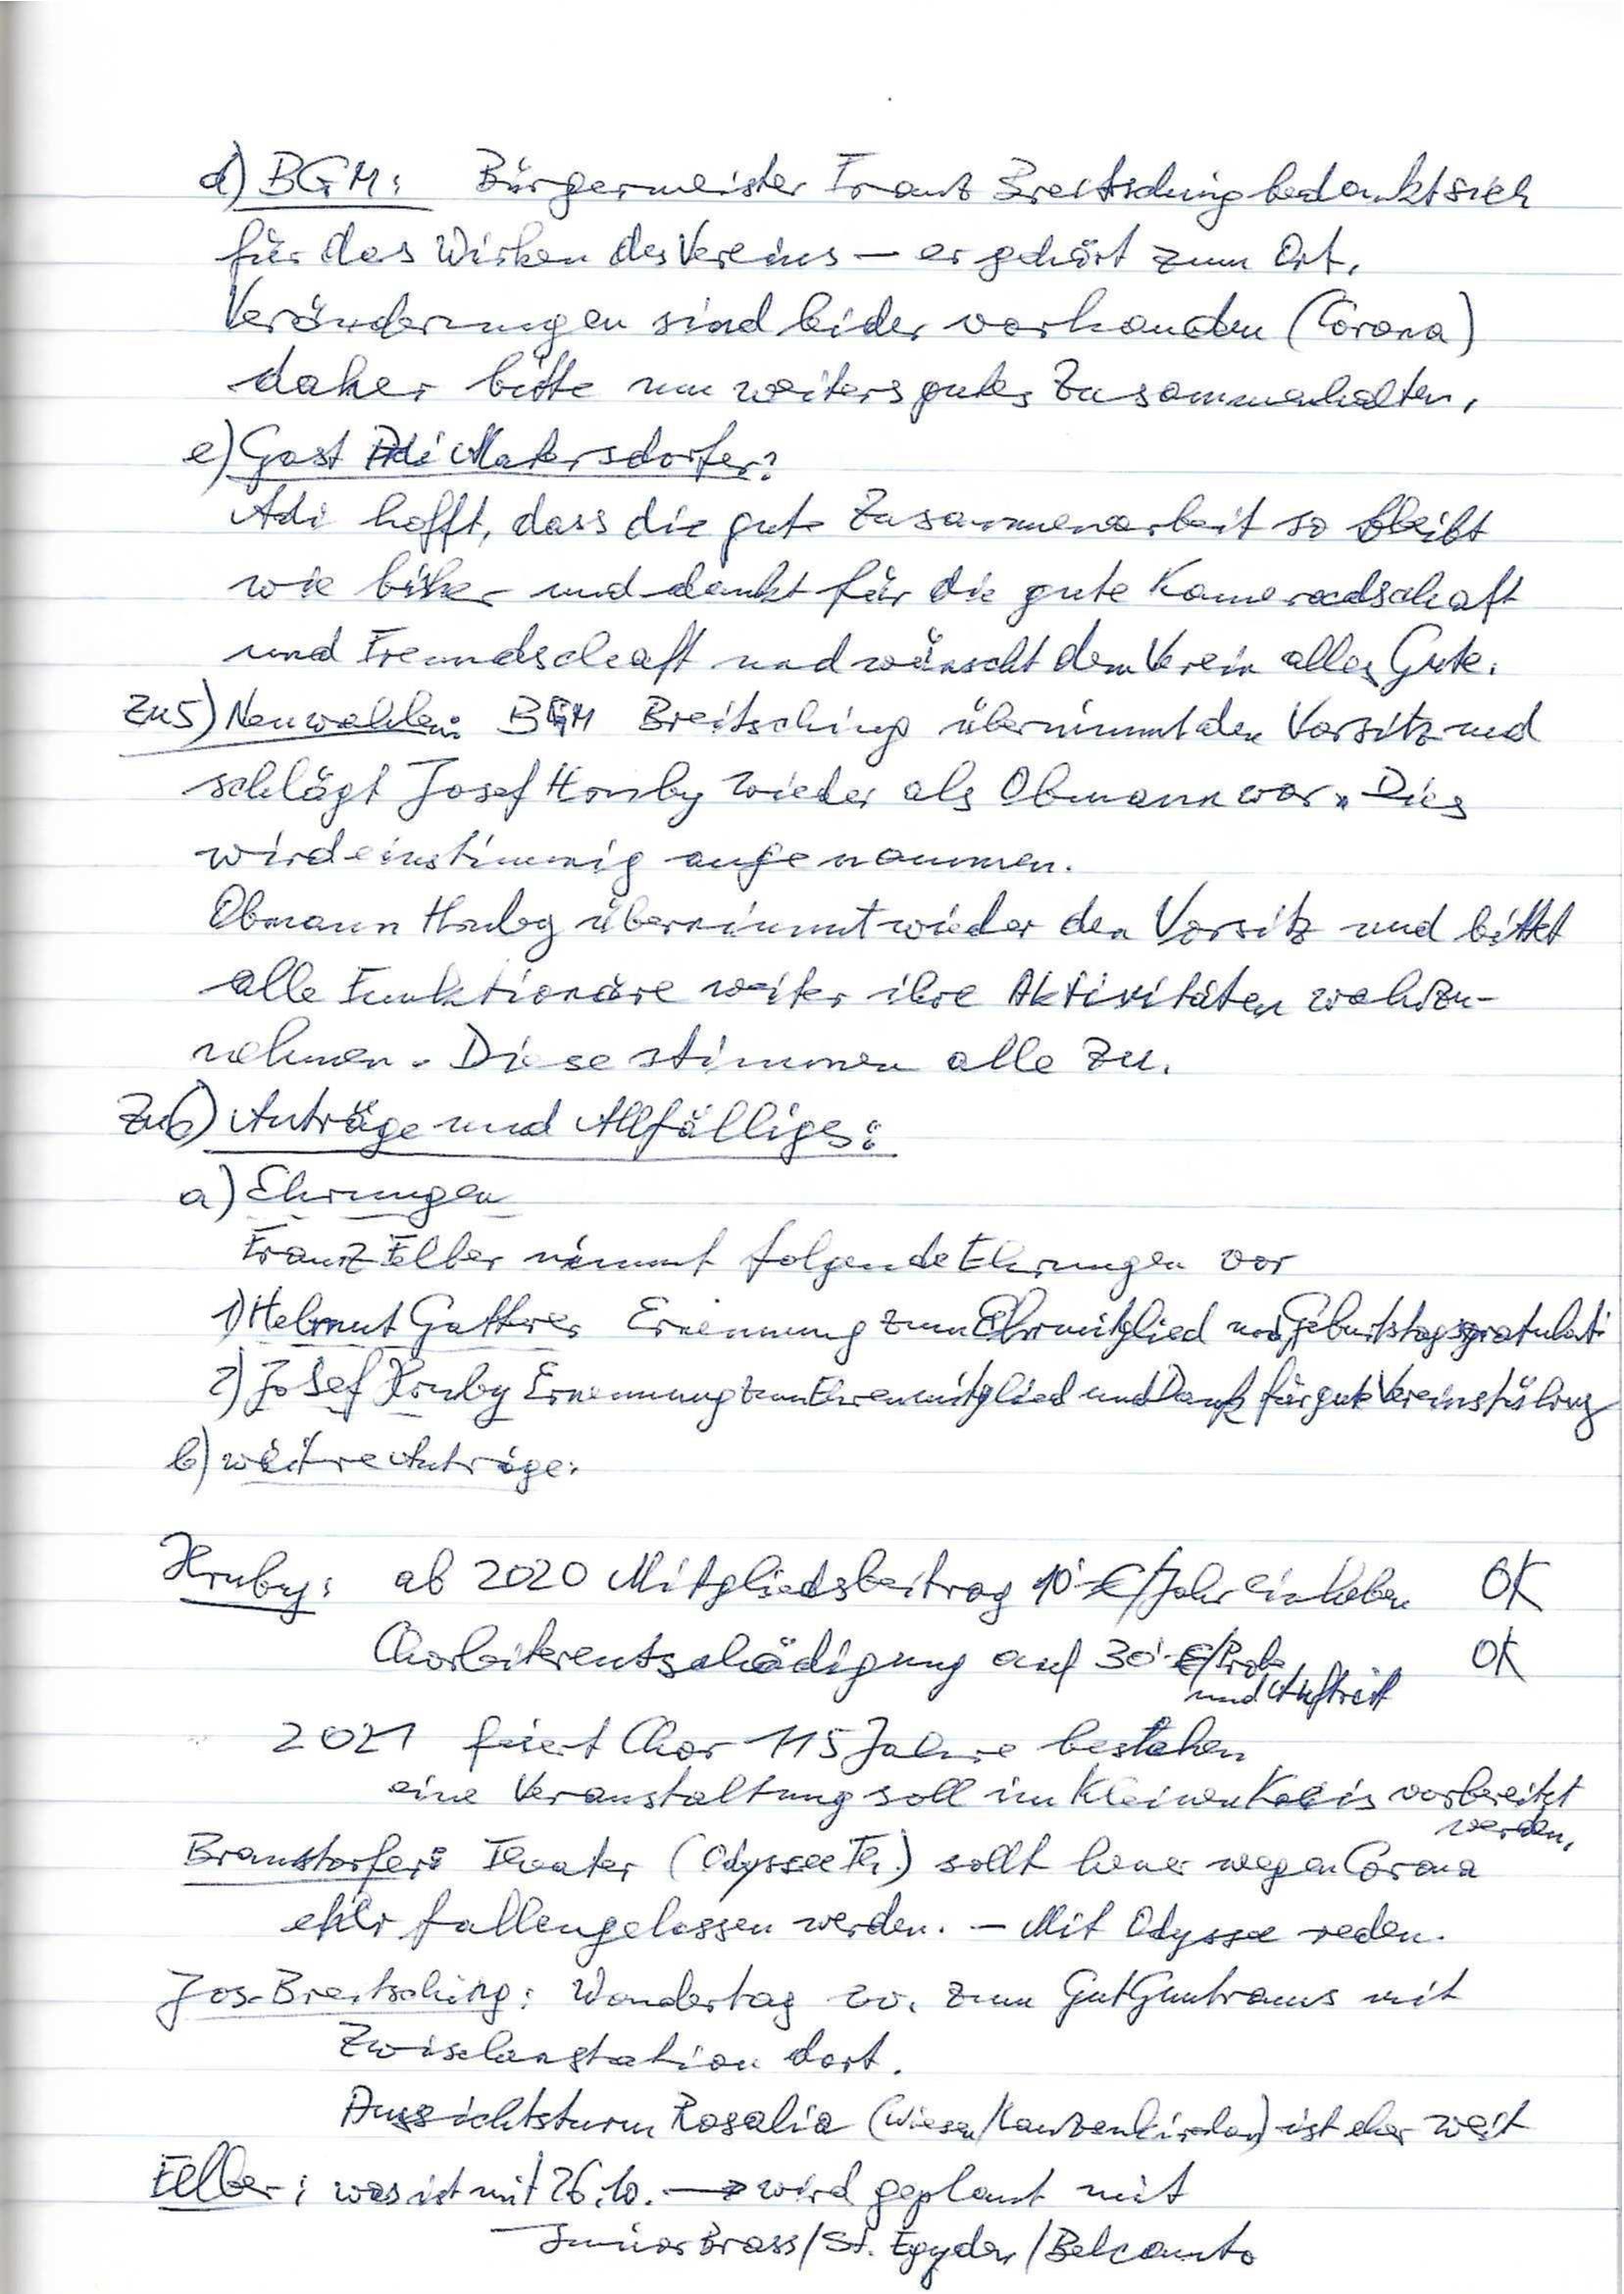 d) BGM: Bürgermeister Franz Breitsching bedankt sich
für das Wirken des Vereins – er gehört zum Ort.
Veränderungen sind leider vorhanden (Corona)
daher bitte um weiters gutes Zusammenhalten.
e) Gast Adi Matersdorfer:
Adi hofft, dass die gute Zusammenarbeit so bleibt
wie bisher und dankt für die gute Kameradschaft
und Freundschaft und wünscht dem Verein alles Gute.
Zu 5) Neuwahlen: BGM Breitsching übernimmt den Vorsitz und
schlägt Josef Hruby wieder als Obmann vor. Dies
wird einstimmig angenommen.
Obmann Hruby übernimmt wieder den Vorsitz und bittet
alle Funktionäre weiter ihre Aktivitäten wahrzu-
nehmen. Diese stimmen alle zu.
Zu 6) Anträge und Allfälliges:
a) Ehrungen
Franz Felber nimmt folgende Ehrungen vor
1) Helmut Gatterer Ernennung zum Ehrmitglied und Geburtstagsgratulati
2) Josef Hruby Ernennung zum Ehrenmitglied und Dank für gute Vereinsführung
b) weitere Anträge:
Hruby: ab 2020 Mitgliedsbeitrag 10'-€/Jahr einheben OK
Chorleiterentschädigung auf 30'-€/Probe OK
und Auftritt
2021 feiert Chor 115 Jahre bestehen
eine Veranstaltung soll im Kleinen Kreis vorbereitet
werden.
Branstorfer: Theater (Odyssee Th.) sollt heuer wegen Corona
eher fallengelassen werden. – Mit Odyssee reden.
Jos. Breitsching: Wandertag zum Gut Guntrams mit
Zwischenstation dort.
Aussichtsturm Rosalia (Wiesen/) ist eher weit
Felber: was ist mit 26.10. → wird geplant mit
Junior Brass/St. Egyden/Belcanto